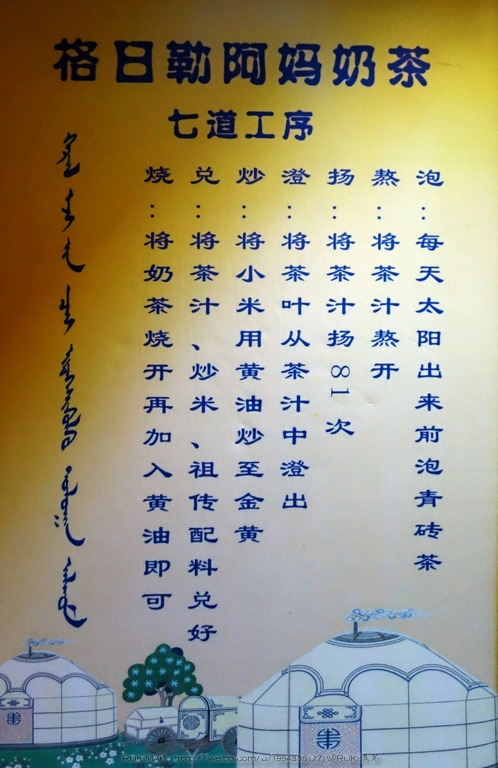 格日勒阿妈奶茶
七道工序
泡：每天太阳出来前泡青砖茶
熬：将茶汁熬开
扬：将茶汁扬81次
澄：将茶叶从茶汁中澄出
炒：将小米用黄油炒至金黄
兑：将茶汁、炒米、祖传配料兑好
烧：将奶茶烧开再加入黄油即可